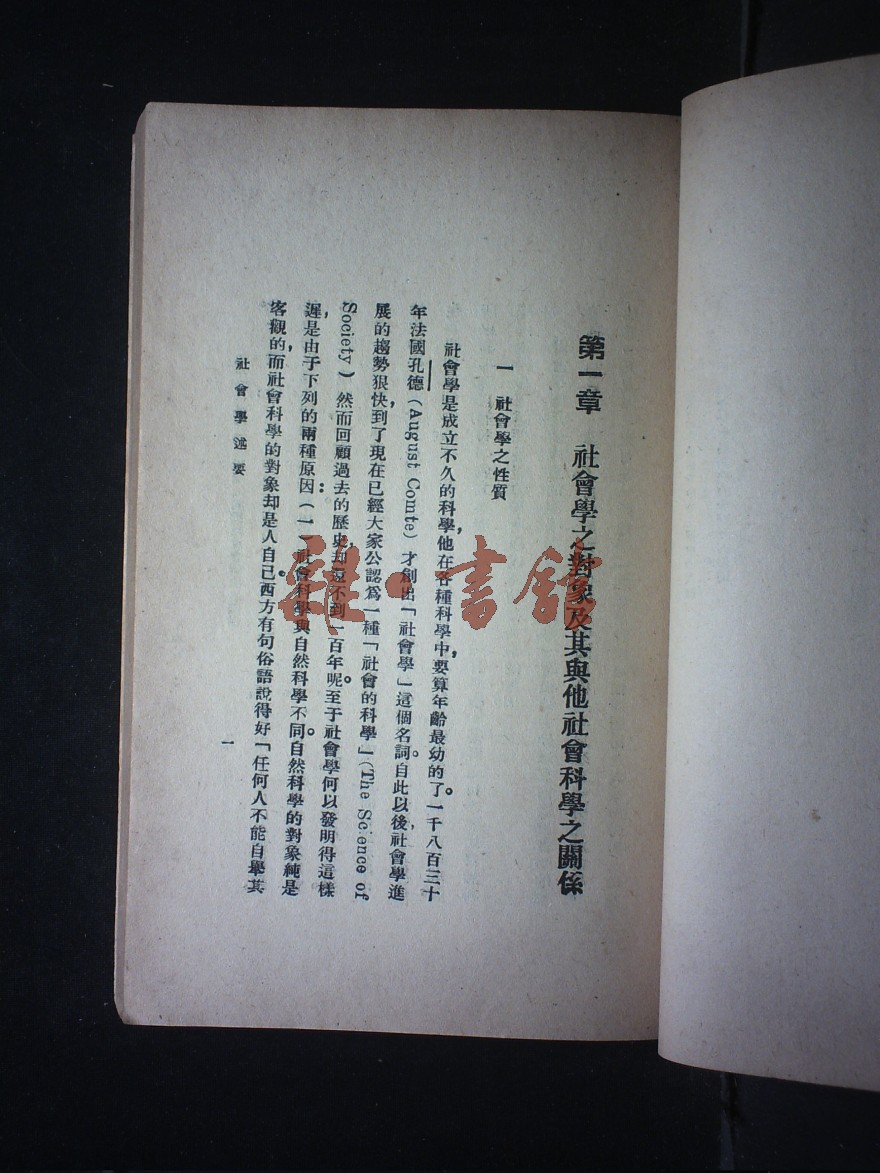 第一章　社會學之對象及其與他社會科學之關係
一　社會學之性質
社會學是成立不久的科學，他在各種科學中，要算年齡最幼的了。一千八百三十
年法國孔德（August Comte）才創出「社會學」這個名詞。自此以後，社會學進
展的趨勢狠快，到了現在已經大家公認爲一種「社會的科學」（The Science of
Society）然而回顧過去的歷史，却還不到一百年呢。至于社會學何以發明得這樣
遲，是由于下列的兩種原因：（一）社會科學與自然科學不同。自然科學的對象純是
客觀的，而社會科學的對象却是人自己。西方有句俗語說得好「任何人不能自舉其
社會學述要
一
雜·書館